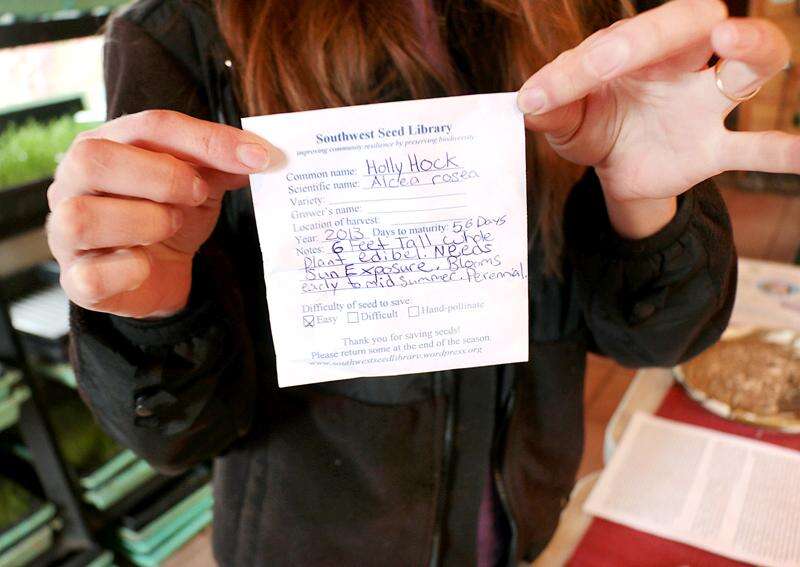 Southwest Seed Library
improving community resilience by preserving biodiversity
Common name: Holly Hock
Scientific name: Alcea rosea
Variety:
Grower's name:
Location of harvest:
Year: 2013 Days to maturity: 56 Days
Notes: 6 Feet Tall, whole
plant edibel. Needs
Sun Exposure. Blooms
early to mid summer. Perennial.
Difficulty of seed to save:
Easy Difficult Hand-pollinate
Thank you for saving seeds!
Please return some at the end of the season.
www.southwestseedlibrary.wordpress.org